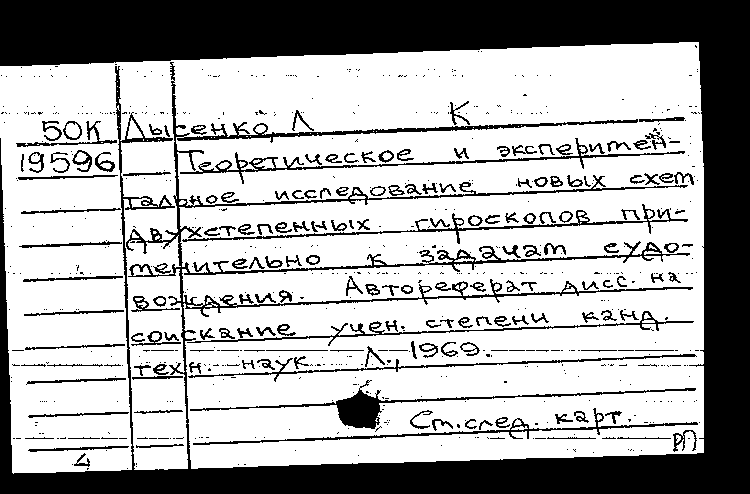 50К Лысенко, Л К
19596 Теоретическое и эксперимен-
тальное исследование новых схем
двухстепенных гироскопов при-
менительно к задачам судо-
вождения. Автореферат дисс. на
соискание учен. степени канд.
техн. наук Л., 1969.
См. след. карт.
РП
4